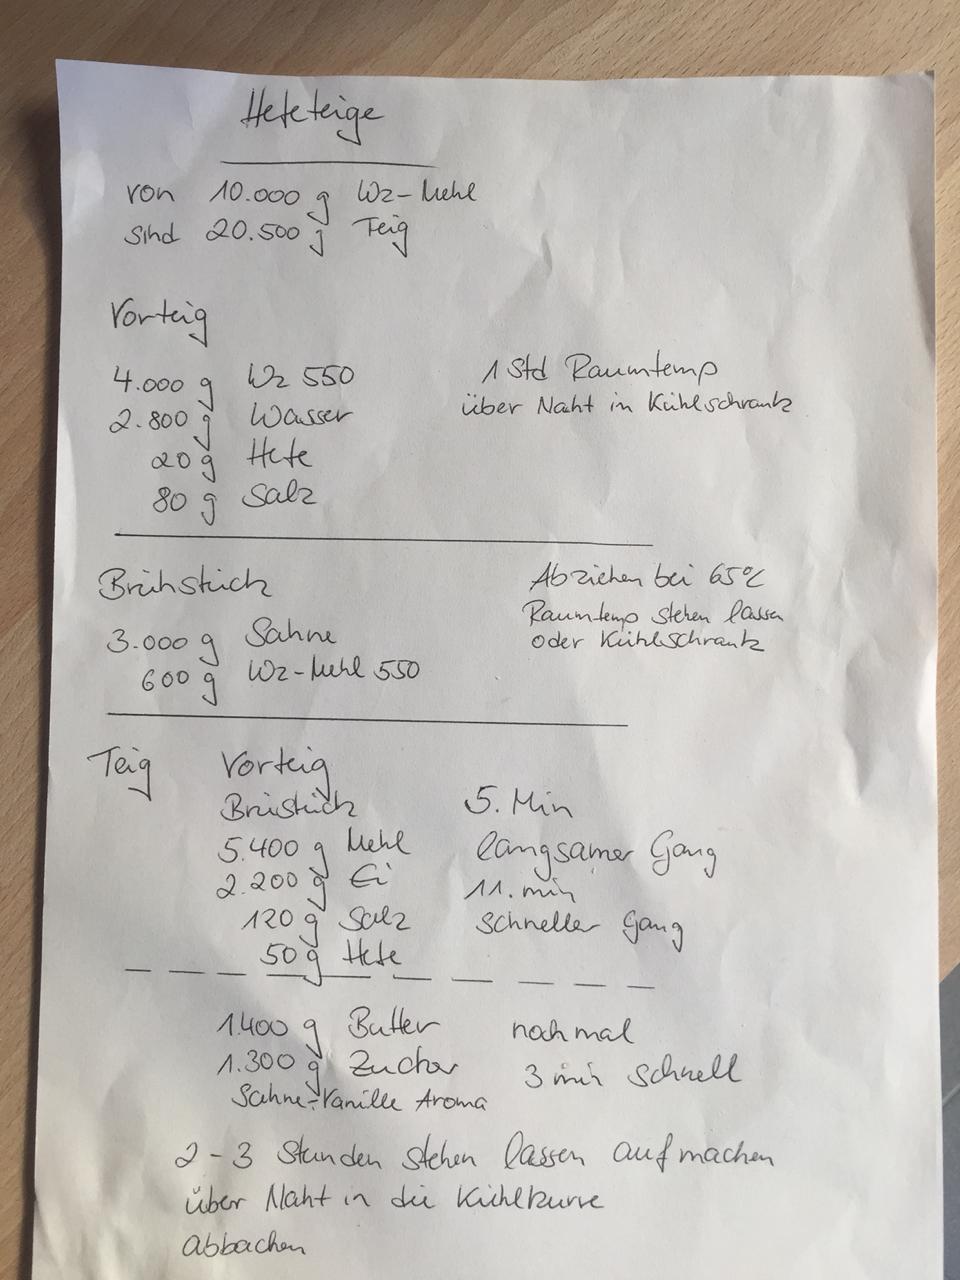 Hefeteige
von 10.000 g Wz-Mehl
sind 20.500 g Teig
Vorteig
4.000 g Wz 550
2.800 g Wasser
20 g Hefe
80 g Salz
1 Std Raumtemp
über Naht in Kühlschrank
Brühstück
3.000 g Sahne
600 g Wz-Mehl 550
Abziehen bei 65°C
Raumtemp stehen lassen
oder Kühlschrank
Teig Vorteig
Brüstück
5.400 g Mehl
2.200 g Ei
120 g Salz
50 g Hefe
5. Min
langsamer Gang
11. min
schneller Gang
1.400 g Butter
1.300 g Zucker
Sahne-Vanille Aroma
nochmal
3 min schnell
2-3 Stunden stehen lassen aufmachen
über Naht in die Kühlkurve
abbachen